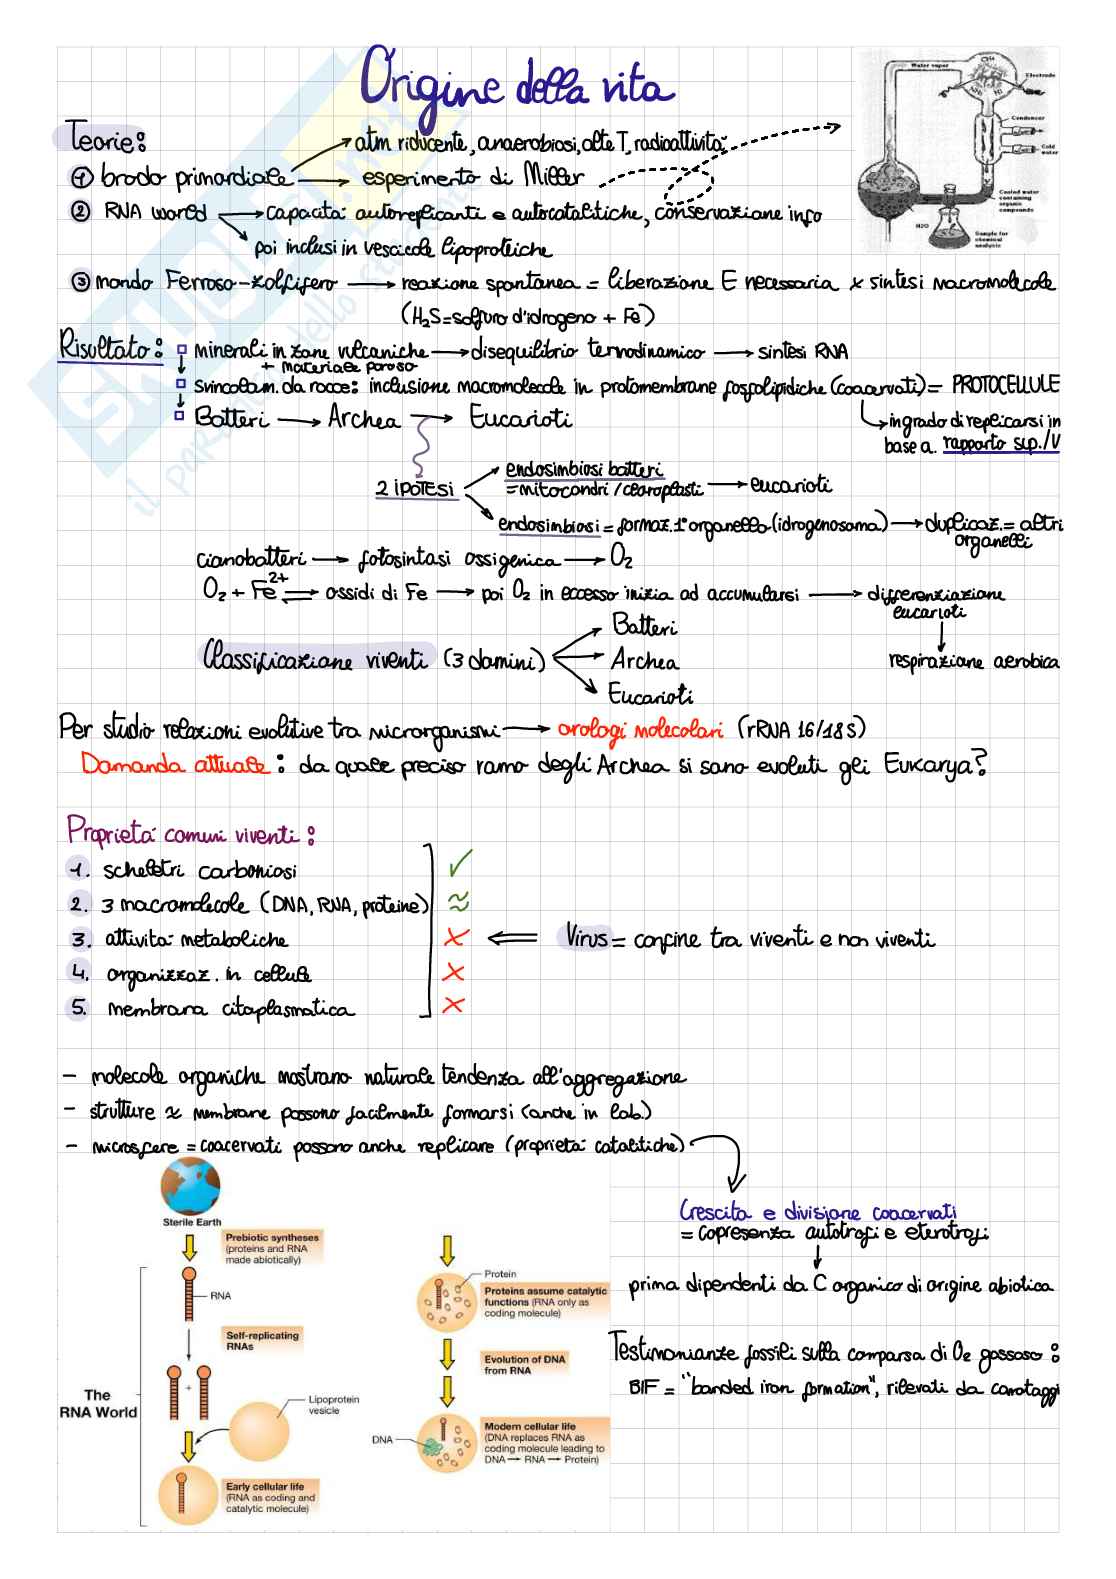 Origine della vita
Teorie:
atm riducente, anaerobiosi, alte T, radioattività
① brodo primordiale
esperimento di Miller
② RNA world → capacità autoreplicanti e autocatalitiche, conservazione info
poi inclusi in vescicole lipoproteiche
③ mondo Ferroso-zolfifero → reazione spontanea = liberazione E necessaria x sintesi macromolecole
(H₂S = solfuro d'idrogeno + Fe)
Water vapor
CH₄
NH₃
H₂
Electrode
Condenser
Cold water
H2O
Cooled water containing organic compounds
Sample for chemical analysis
Risultato:
minerali in zone vulcaniche → disequilibrio termodinamico → sintesi RNA
+ materiale poroso
svincolam. da rocce: inclusione macromolecole in protomembrane fosfolipidiche (coacervati) = PROTOCELLULE
Batteri → Archea → Eucarioti
in grado di replicarsi in
base a rapporto sup./V
2 IPOTESI
endosimbiosi batteri
= mitocondri / cloroplasti → eucarioti
endosimbiosi = formaz. 1° organello (idrogenosoma) → duplicaz. = altri
organelli
cianobatteri → fotosintasi ossigenica → O₂
O₂ + Fe²⁺ ⇌ ossidi di Fe → poi O₂ in eccesso inizia ad accumularsi → differenziazione
eucarioti
respirazione aerobica
Classificazione viventi (3 domini)
Batteri
Archea
Eucarioti
Per studio relazioni evolutive tra microrganismi → orologi molecolari (rRNA 16/18S)
Domanda attuale: da quale preciso ramo degli Archea si sono evoluti gli Eukarya?
Proprietà comuni viventi:
1. scheletri carboniosi ✓
2. 3 macromolecole (DNA, RNA, proteine) ≈
3. attività metaboliche ✗ ⇐ Virus = confine tra viventi e non viventi
4. organizzaz. in cellule ✗
5. membrana citoplasmatica ✗
- molecole organiche mostrano naturale tendenza all'aggregazione
- strutture ≈ membrane possono facilmente formarsi (anche in lab.)
- microsfere = coacervati possono anche replicare (proprietà catalitiche)
Crescita e divisione coacervati
= copresenza autotrofi e eterotrofi
prima dipendenti da C organico di origine abiotica
Testimonianze fossili sulla comparsa di O₂ gassoso:
BIF = "banded iron formation", rilevati da carotaggi
Sterile Earth
Prebiotic syntheses
(proteins and RNA
made abiotically)
RNA
Self-replicating
RNAs
The
RNA World
+
Lipoprotein
vesicle
Early cellular life
(RNA as coding and
catalytic molecule)
Protein
Proteins assume catalytic
functions (RNA only as
coding molecule)
Evolution of DNA
from RNA
DNA
Modern cellular life
(DNA replaces RNA as
coding molecule leading to
DNA → RNA → Protein)
skuola.net
il paradiso dello studente